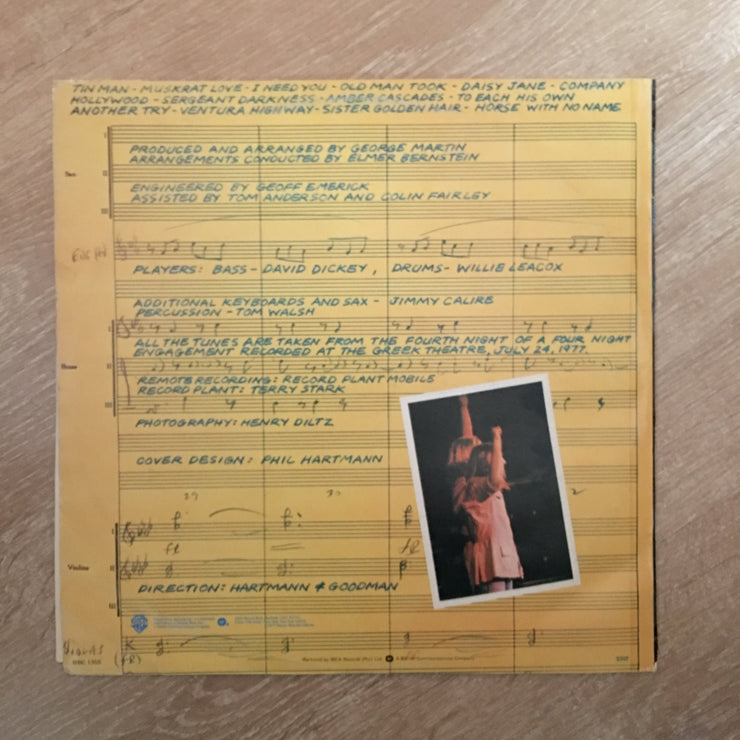 TIN MAN - MUSKRAT LOVE - I NEED YOU - OLD MAN TOOK - DAISY JANE - COMPANY
HOLLYWOOD - SERGEANT DARKNESS - AMBER CASCADES - TO EACH HIS OWN
ANOTHER TRY - VENTURA HIGHWAY - SISTER GOLDEN HAIR - HORSE WITH NO NAME
I
PRODUCED AND ARRANGED BY GEORGE MARTIN
ARRANGEMENTS CONDUCTED BY ELMER BERNSTEIN
II
ENGINEERED BY GEOFF EMERICK
ASSISTED BY TOM ANDERSON AND COLIN FAIRLEY
III
PLAYERS: BASS - DAVID DICKEY, DRUMS - WILLIE LEACOX
ADDITIONAL KEYBOARDS AND SAX - JIMMY CALIRE
PERCUSSION - TOM WALSH
I
ALL THE TUNES ARE TAKEN FROM THE FOURTH NIGHT OF A FOUR NIGHT
ENGAGEMENT RECORDED AT THE GREEK THEATRE, JULY 24, 1977.
II
REMOTE RECORDING: RECORD PLANT MOBILE
RECORD PLANT: TERRY STARK
III
PHOTOGRAPHY: HENRY DILTZ
COVER DESIGN: PHIL HARTMANN
I
Violins
II
DIRECTION: HARTMANN & GOODMAN
III